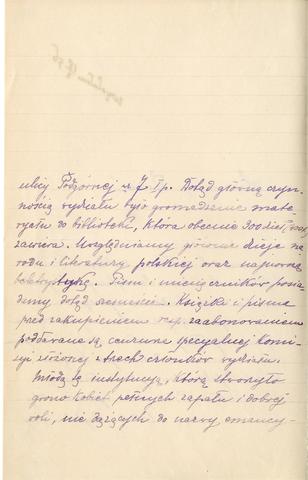 ulicy Podgórnej nr 7 I p. Dotąd główną czyn-
nością wydziału było gromadzenie mate-
ryału do biblioteki, która obecnie 300 dzieł
zawiera. Uwzględniamy głównie dzieje na-
rodu i literatury polskiej oraz najnowszą
beletrystykę. Pism i miesięczników posia-
damy dotąd Książki i pisma
przed zakupieniem resp. zaabonowaniem
poddawane są cenzurze specyalnej komi-
syi złożonej z trzech członków wydziału.
Młodą tę instytucyą, którą stworzyło
grono kobiet pełnych zapału i dobrej
woli, nie dążących do nazwy emancy-